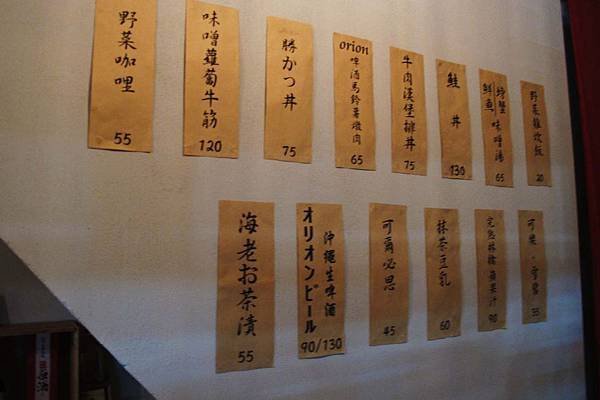 野菜咖哩
55
味噌蘿蔔牛筋
120
勝かつ丼
75
orion
啤酒馬鈴薯燉肉
65
牛肉漢堡排丼
75
鮭丼
130
螃蟹
鮮魚
味噌湯
65
野菜雜炊飯
20
海老お茶漬
55
沖繩生啤酒
オリオンビール
90/130
可爾必思
45
抹茶豆乳
60
90
可樂・雪碧
35